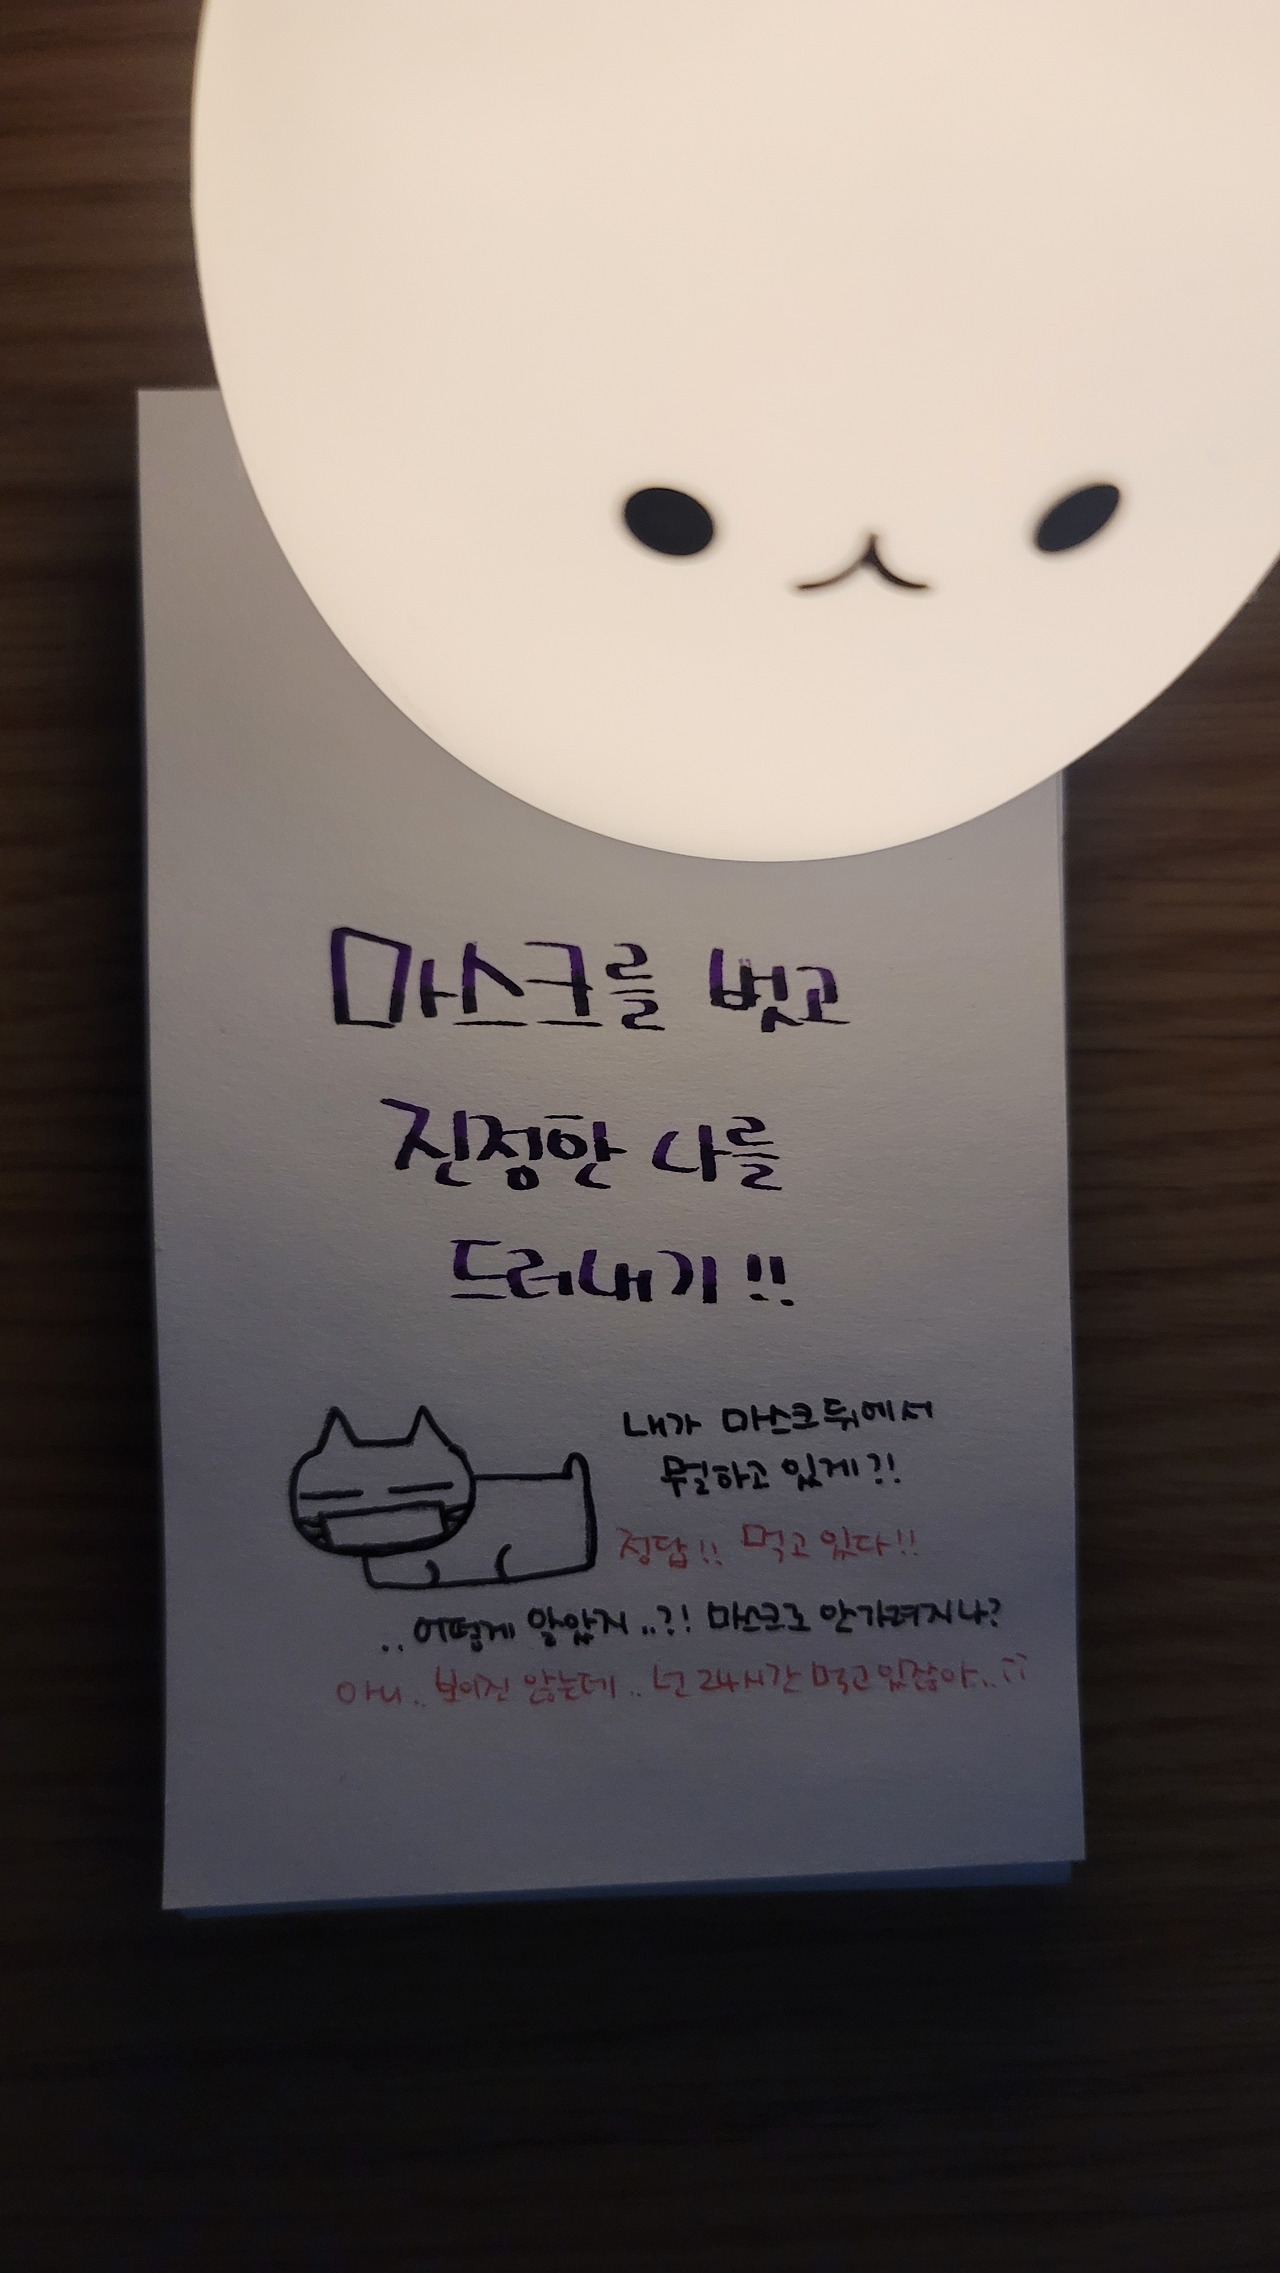 마스크를 벗고
진정한 나를
드러내기!!
내가 마스크뒤에서
뭘하고 있게?!
정답!! 먹고있다!!
..어떻게 알았지..?! 마스크로 안가려지나?
아니.. 보이진 않는데.. 넌 24시간 먹고있잖아..